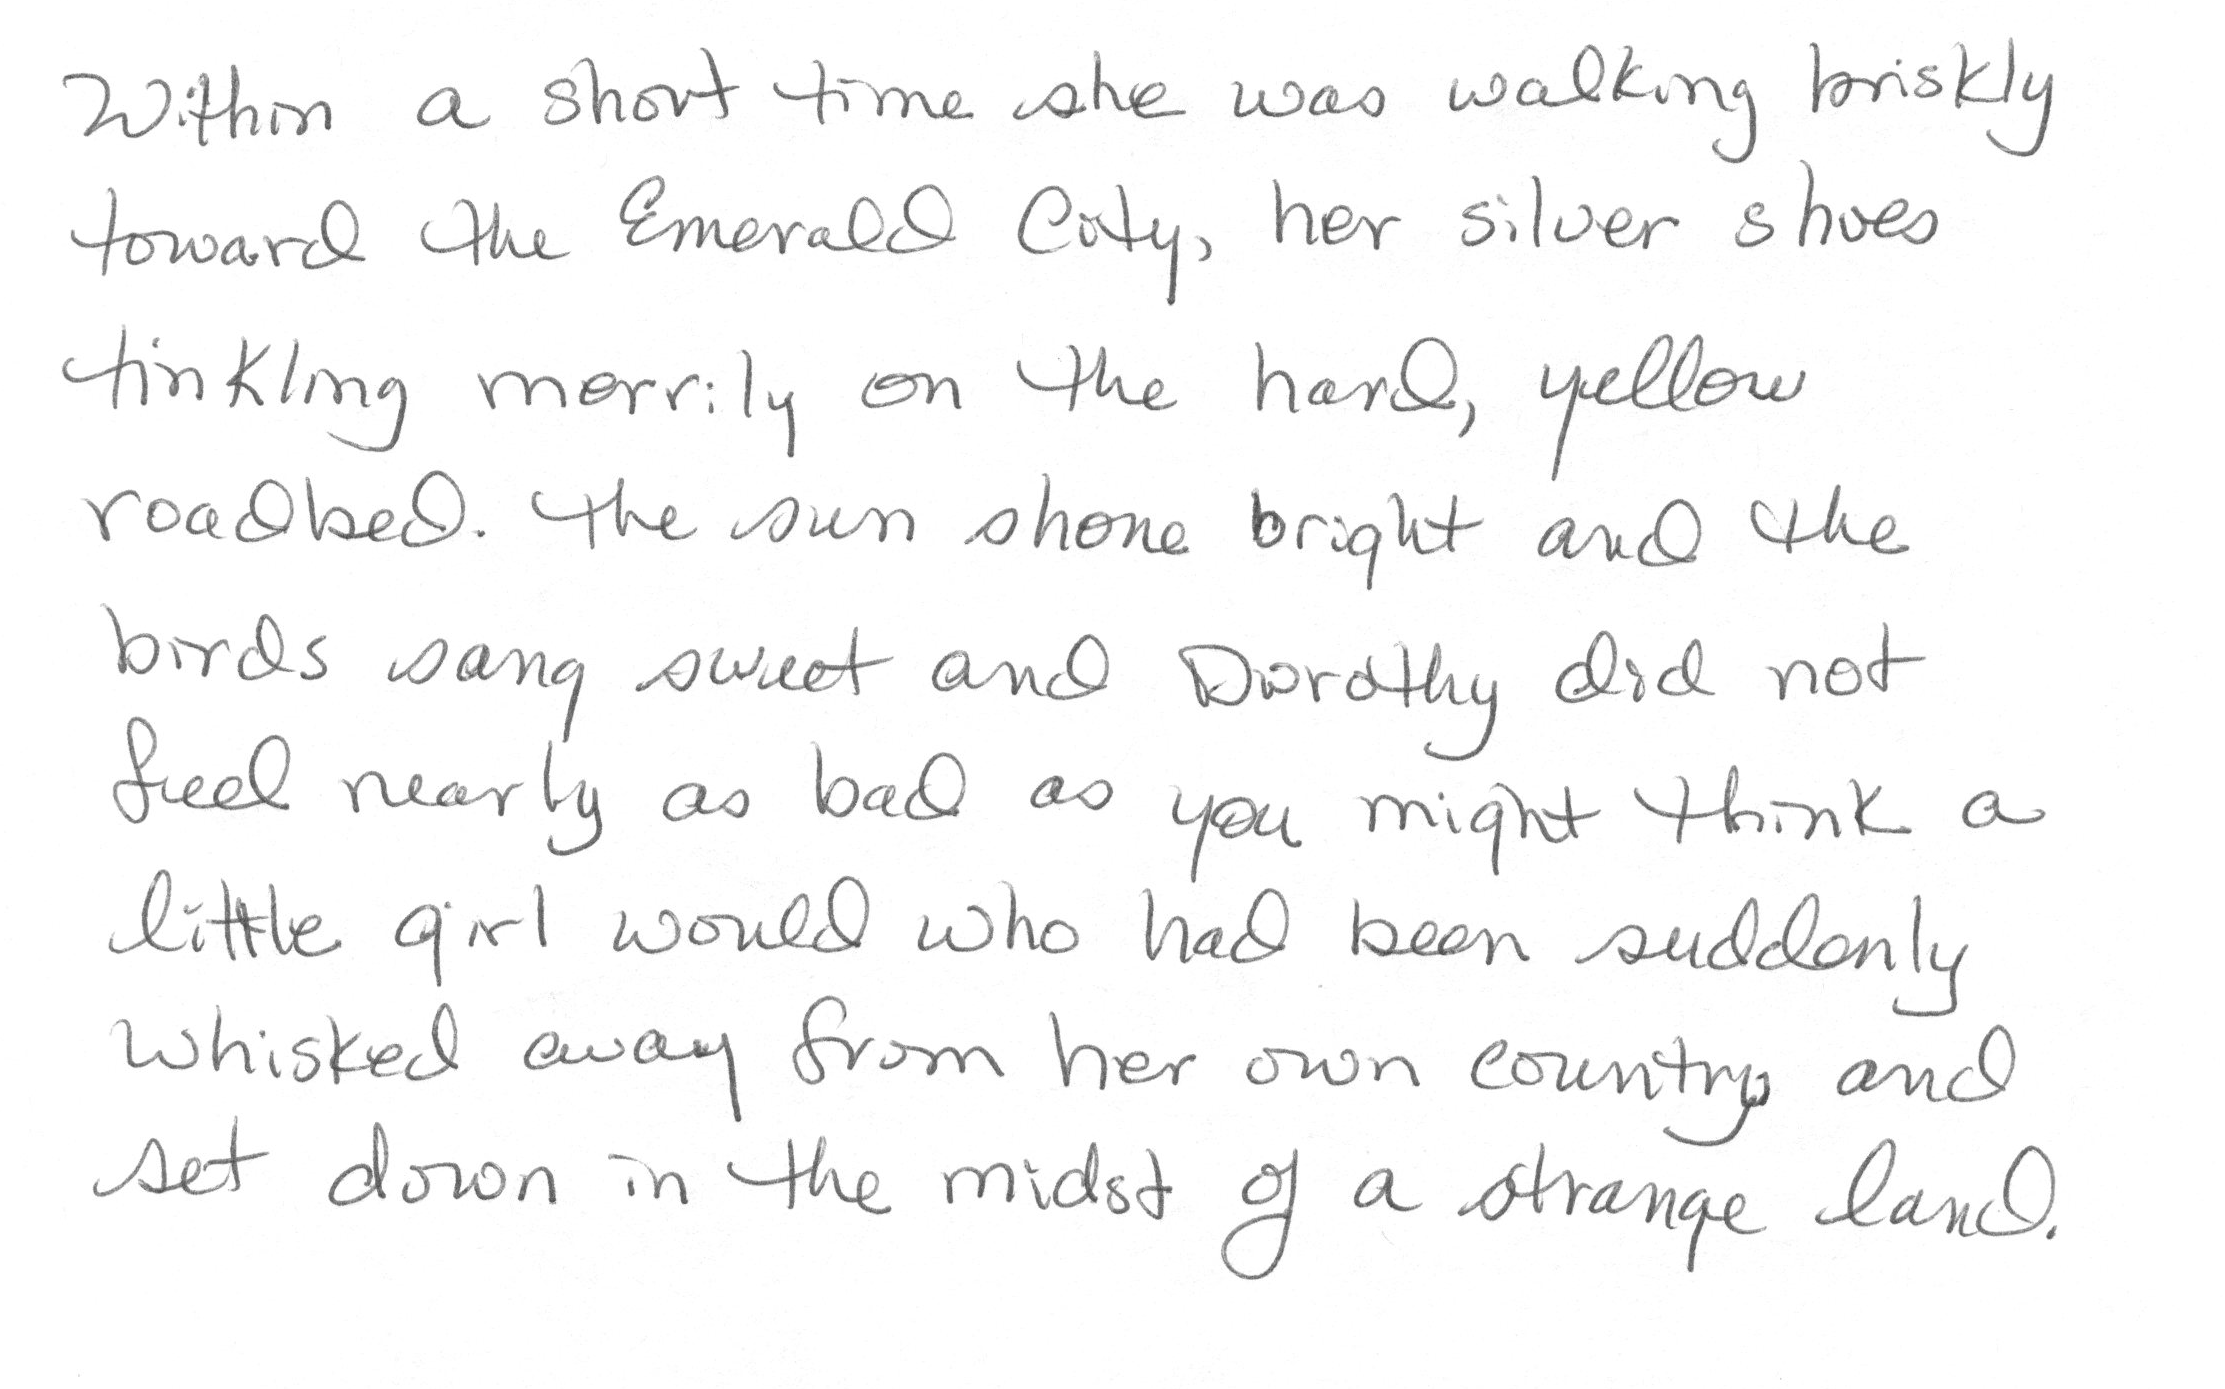 Within a short time she was walking briskly
toward the Emerald City, her silver shoes
tinkling merrily on the hard, yellow
roadbed. The sun shone bright and the
birds sang sweet and Dorothy did not
feel nearly as bad as you might think a
little girl would who had been suddenly
whisked away from her own country and
set down in the midst of a strange land.